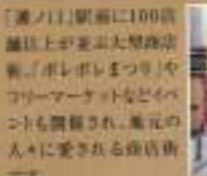 「溝ノ口」駅前に100店
舗以上が並ぶ大型商店
街。「ポレポレまつり」や
フリーマーケットなどイベ
ントも開催され、地元の
人々に愛される商店街
です。